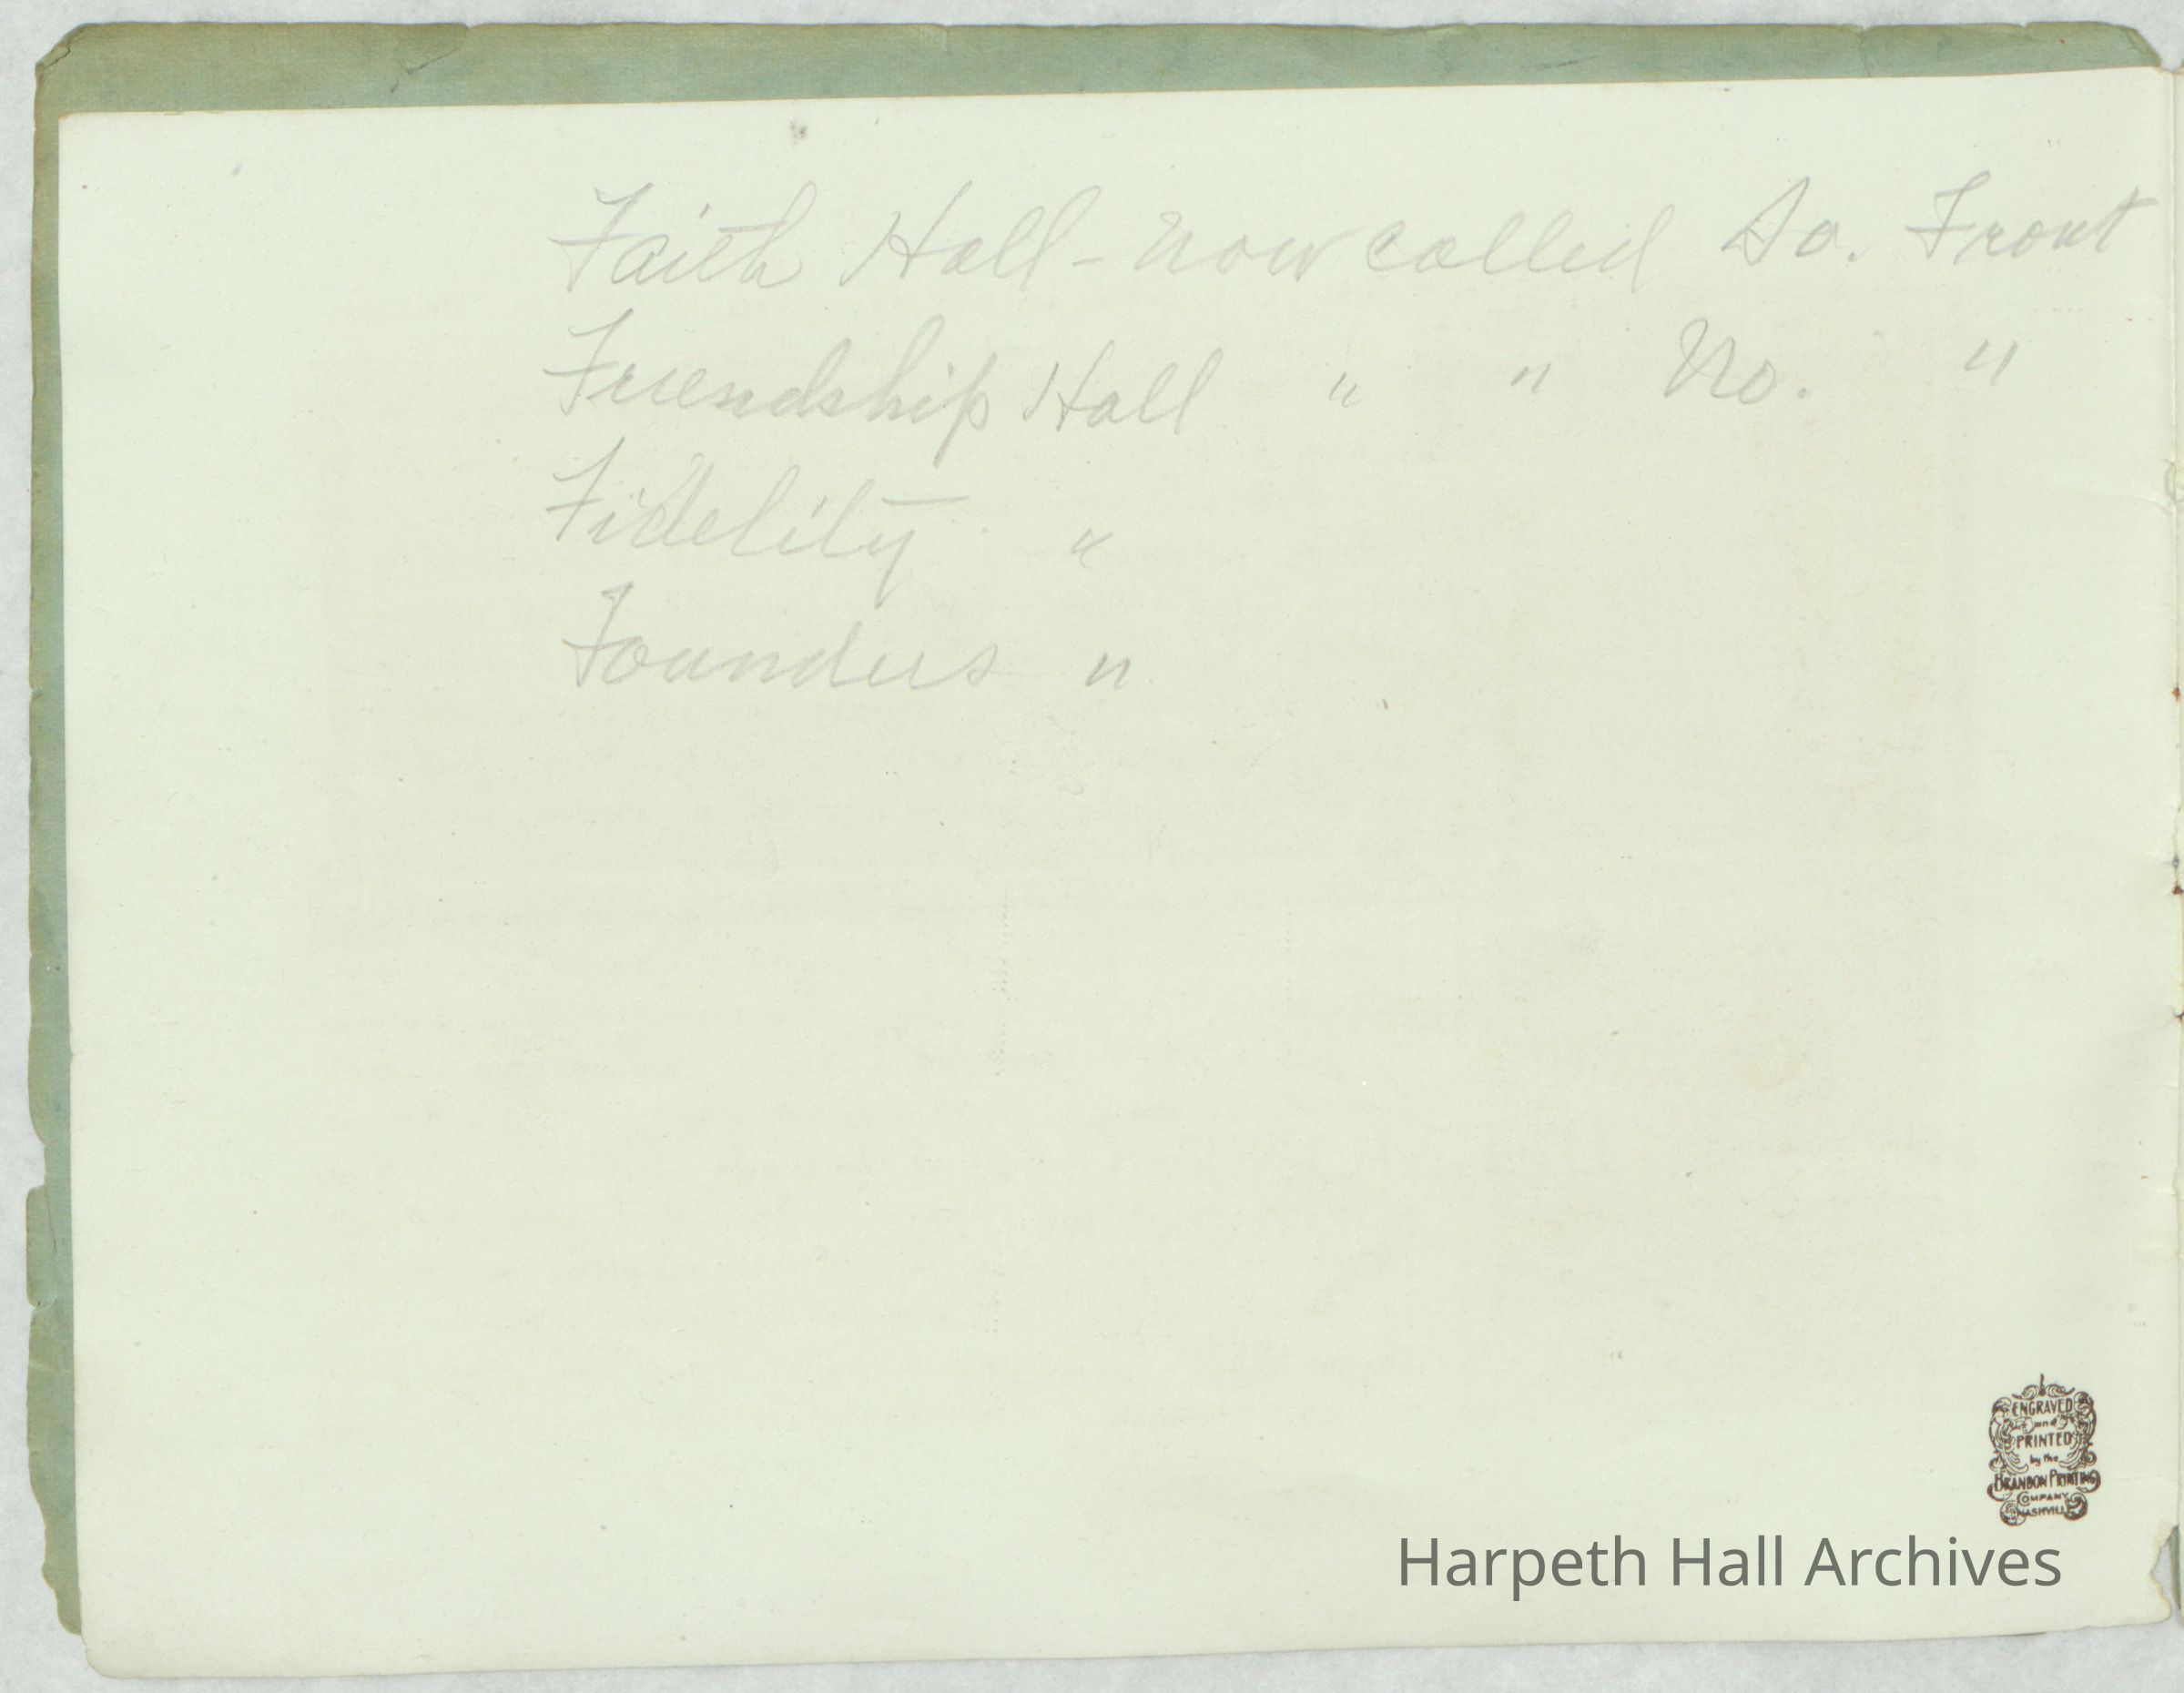 Faith Hall - now called So. Front
Friendship Hall " " No. "
Fidelity "
Founders "
ENGRAVED
and
PRINTED
by the
BRANDON PRINTING
COMPANY
NASHVILLE
Harpeth Hall Archives